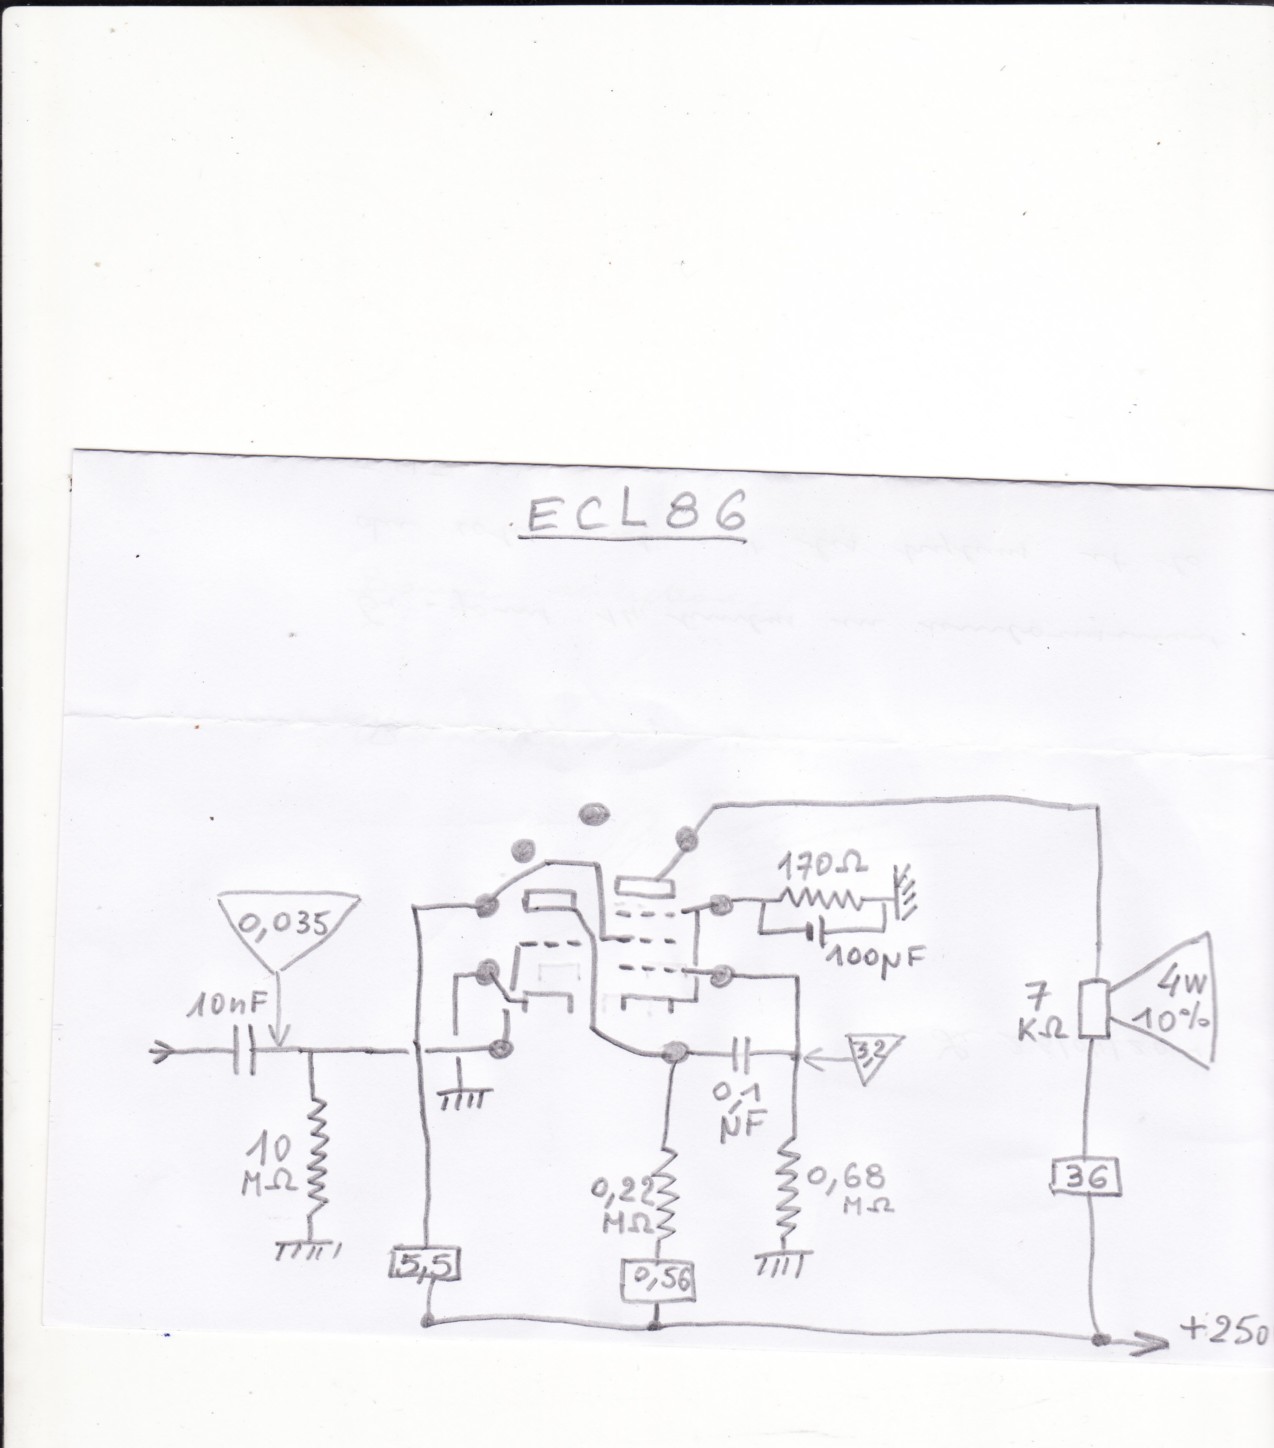 ECL86
170Ω
100µF
0,035
10nF
7
KΩ
4W
10%
3,2
0,1
µF
10
MΩ
0,22
MΩ
0,68
MΩ
36
5,5
0,56
+250